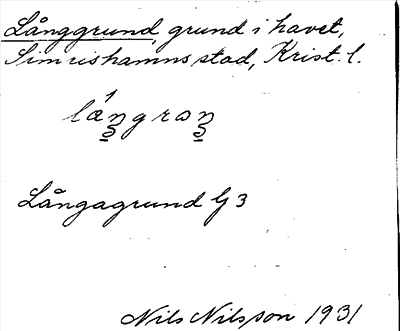 Långgrund, grund i havet,
Simrishamns stad, Krist. l.
Långagrund G 3
Nils Nilsson 1931